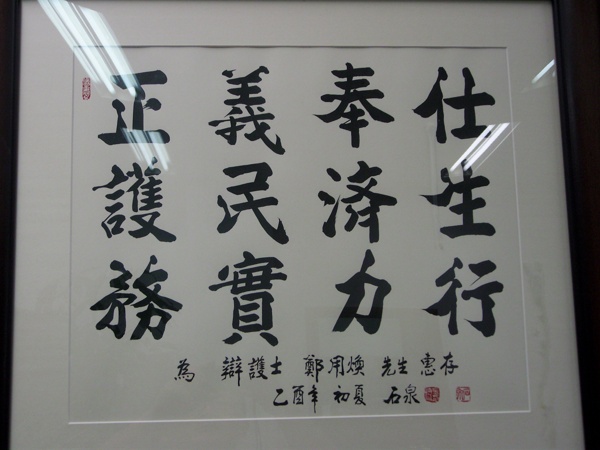 正義奉仕
護民済生
務實力行
為 辯護士 鄭用煥 先生 惠存
乙酉年 初夏 石泉